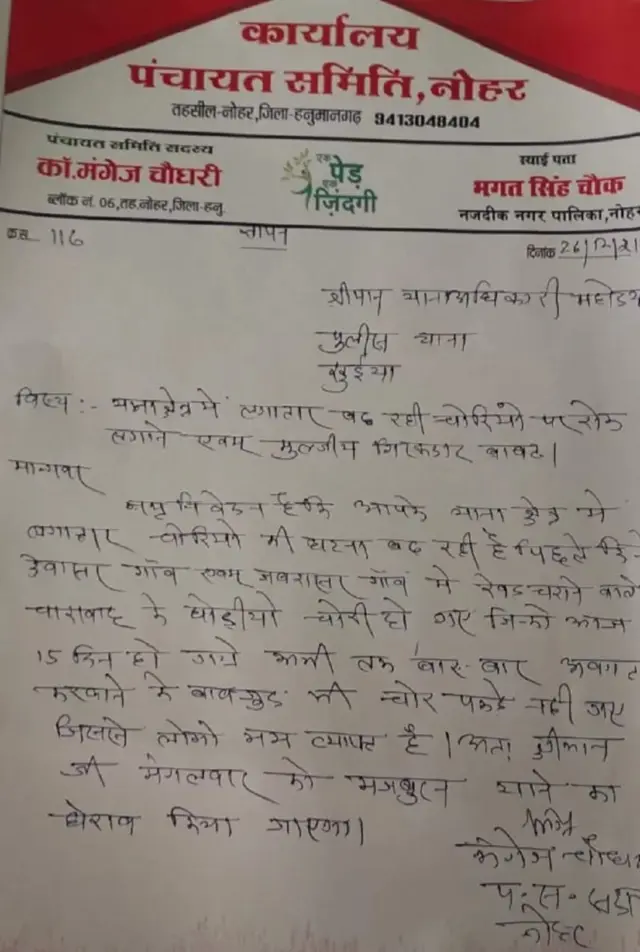 कार्यालय
पंचायत समिति,नोहर
तहसील-नोहर,जिला-हनुमानगढ़ 9413048404
पंचायत समिति सदस्य
कॉ.मंगेज चौधरी
ब्लॉक नं. 06,तह.नोहर,जिला-हनु.
एक पेड़
एक ज़िंदगी
स्थाई पता
भगत सिंह चौक
नजदीक नगर पालिका,नोहर
क्रम 116 ज्ञापन दिनांक 26/12/21
श्रीमान थानाअधिकारी महोदय
पुलीस थाना
खुईया
विषय :- थानाक्षेत्र मे लगातार बढ रही चोरियो पर रोक
लगाने एवम मुल्जीम गिरफ्तार बाबत।
मान्यवर
नम्र निवेदन है कि आपके थाना क्षेत्र मे
लगातार चोरियो की घटना बढ रही है पिछले
देवासर गाँव एवम जबरासर गाँव मे रेवड चराने वाले
चारावाह के घोड़ीयो चोरी हो गए जिनको आज
15 दिन हो गये अभी तक बार-बार अवगत
करवाने के बावजुद भी चोर पकडे नही गए
जिससे लोगो भय व्याप्त है। अतः श्रीमान
जी मंगलवार को मजबुरन थाने का
घेराव किया जाएगा।
मंगेज चौधरी
पं.स. सदस्य
नोहर